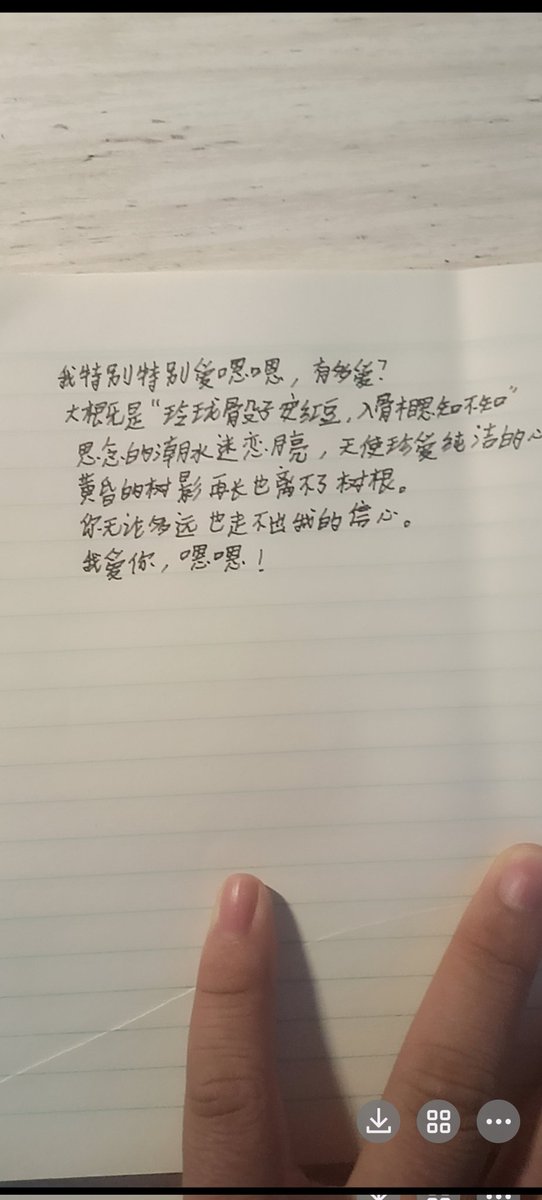 我特别特别爱嗯嗯，有多爱？
大概是“玲珑骰子安红豆，入骨相思知不知”
思念的潮水迷恋月亮，天使珍爱纯洁的心
黄昏的树影再长也离不了树根。
你无论多远也走不出我的信心。
我爱你，嗯嗯！